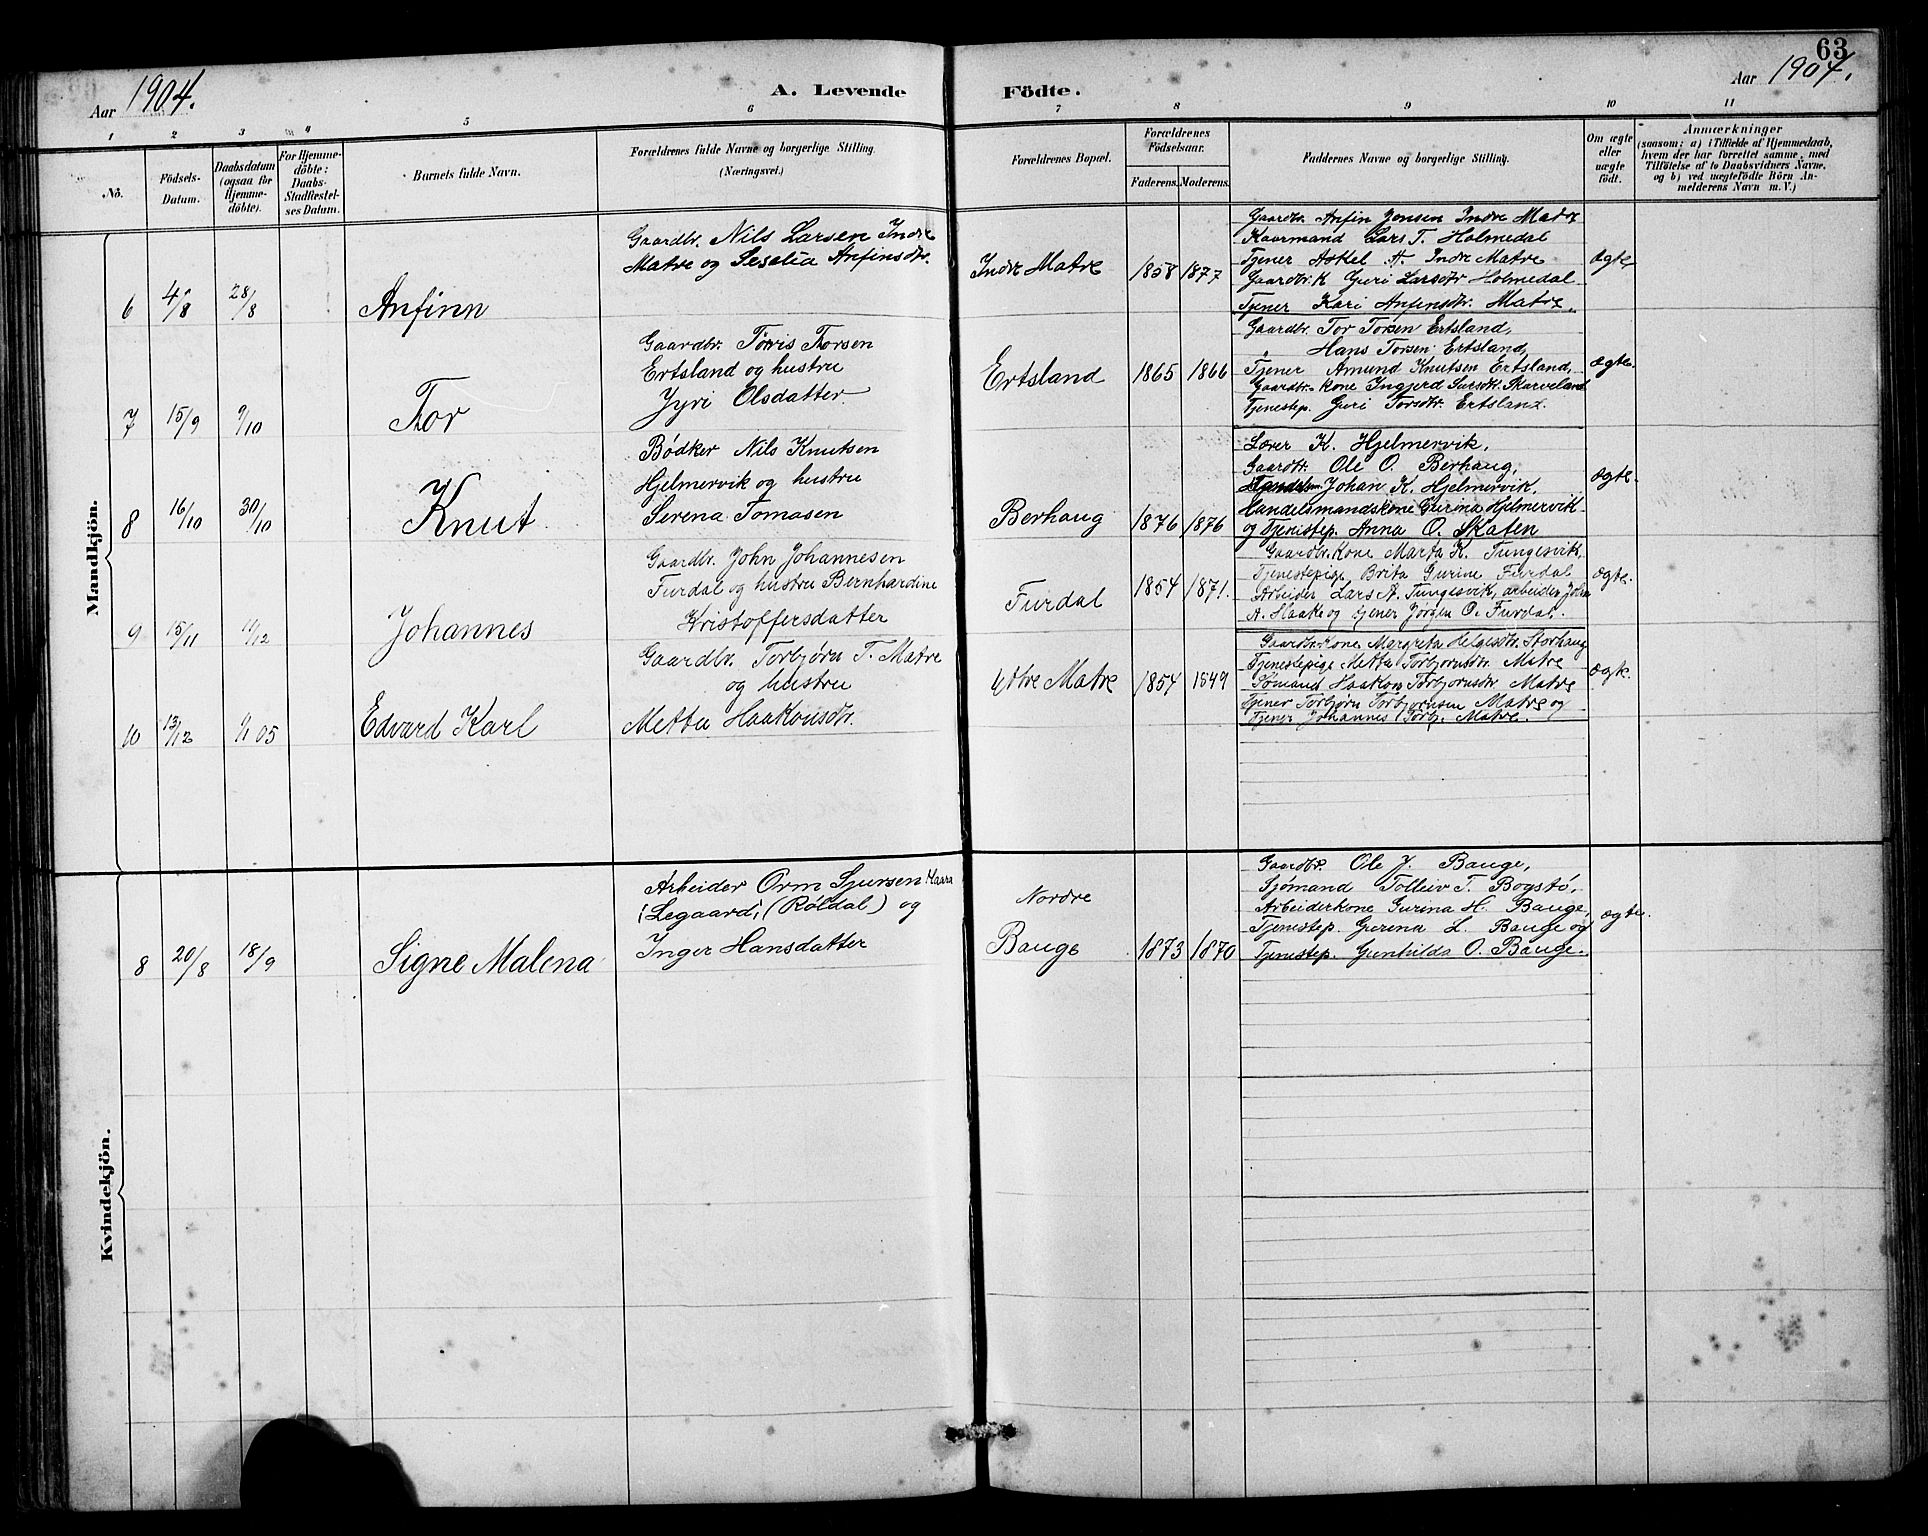 63
Aar 1904.
A. Levende Födte.
Aar 1904.
1 2 3 4 5 6 7 8 9 10 11
No.
Födsels-
Datum.
Daabsdatum
(ogsaa for
Hjemme-
döbte).
For Hjemme-
döbte:
Daabs-
Stadfæstel-
ses Datum.
Barnets fulde Navn.
Forældrenes fulde Navne og borgerlige Stilling.
(Næringsvei.)
Forældrenes Bopæl.
Forældrenes
Födselsaar.
Faderens. Moderens.
Faddernes Navne og borgerlige Stilling.
Om ægte
eller
uægte
födt.
Anmærkninger
(saasom: a) i Tilfælde af Hjemmedaab,
hvem der har forrettet samme, med
Tilföielse af to Daabsvidners Navne,
og b) ved uægtefödte Börn An-
melderens Navn m.V.)
Mandkjön.
6 4/8 28/8 Anfinn
Gaardbr. Nils Larsen Indre
Matre og Seselia Anfinsdtr.
Indre Matre 1858 1877
Gaardbr. Anfin Jonsen Indre Matre
Kaarmand Lars T. Holmedal
Tjener Askel A. Indre Matre
Gaardbr.k Guri Larsdtr Holmedal
Tjener Kari Anfinsdtr. Matre.
Ægte
7 15/9 9/10 Tor
Gaardbr. Tørris Torsen
Ertsland og hustru
Jyri Olsdatter.
Ertsland 1865 1866
Gaardbr. Tor Torsen Ertsland,
Hans Torsen Ertsland,
Tjener Amund Knutsen Ertsland,
Gaardbr. kone Ingjerd Larsdtr. Skarveland
Tjenestep. Guri Torsdtr. Ertsland.
Ægte.
8 16/10 30/10 Knut
Bødker Nils Knutsen
Hjelmervik og hustru
Serena Tomasen
Berhaug 1876 1876
Lærer K. Hjelmervik,
Gaardbr. Ole O. Berhaug,
Johan K. Hjelmervik,
Handelsmandskone Gurina Hjelmervik
og Tjenistep. Anna O. Skaten
Ægte.
9 15/11 11/12 Johannes
Gaardbr. John Johannesen
Furdal og hustru Bernhardine
Kristoffersdatter
Furdal 1854 1871.
Gaardbr. kone Marta K. Tungesvik,
Tjenestepige Brita Gurine Furdal
Arbeider Lars A. Tungesvik, arbeider John
A. Haake og tjener Jørgen O. Furdal.
Ægte.
10 13/12 1/1 05 Edvard Karl
Gaardbr. Torbjørn T. Matre
og hustru
Metta Haakonsdr.
Ytre Matre 1854 1849
Gaardbr. kone Margreta Helgesdtr. Storhaug
Tjenestepige Metta Torbjørnsdtr. Matre
Sømand Haakon Torbjørnsdtr. Matre
Tjener Torbjørn Torbjørnsen Matre og
Tjener Johannes Torbj. Matre.
Ægte.
Kvindekjön.
8 20/8 18/9 Signe Malena
Arbeider Orm Sjursen Haara
(Legaard) (Røldal) og
Inger Hansdatter
Nordre
Bauge 1873 1870
Gaardbr. Ole J. Bauge,
Sjømand Tolleiv T. Bogstø,
Arbeiderkone Gurina H. Bauge,
Tjenistep. Gurina L. Bauge og
Tjenistep. Gunhilda O. Bauge.
Ægte.